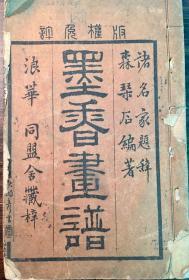 版權免許
諸名家題辭
森琴石編著
墨香畫譜
浪華 同盟舍藏梓